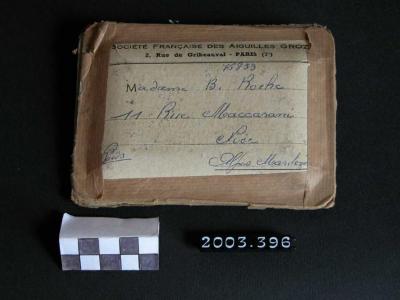 SOCIÉTÉ FRANÇAISE DES AIGUILLES GROZ
2, Rue de Gribeauval - PARIS (7e)
Madame B. Roche
11 Rue Maccarani
Nice
Alpes Maritimes
2003.396